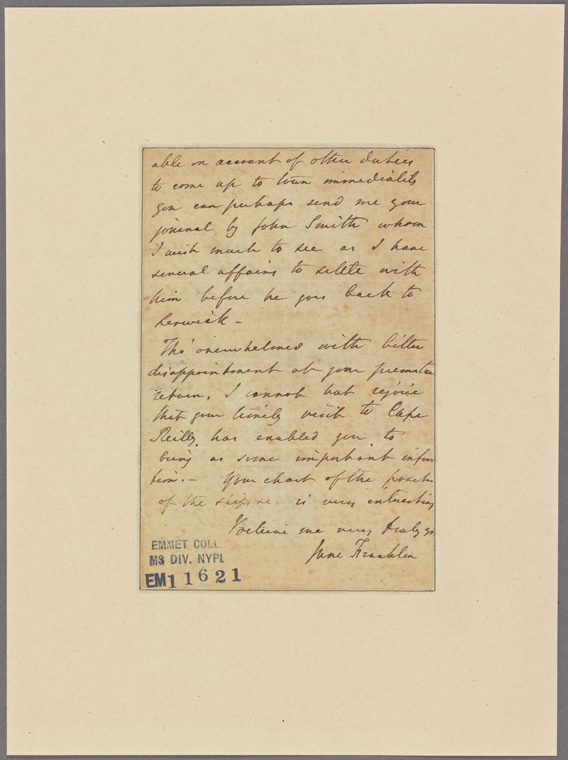 able on account of other duties
to come up to town immediately
you can perhaps send me your
journal by John Smith whom
I wish much to see as I have
several affairs to settle with
him before he goes back to
Lerwick -
Tho' overwhelmed with bitter
disappointment at your premature
return, I cannot but rejoice
that your timely visit to Cape
Reilly has enabled you to
bring us some important infor
tion. - Your chart of the
of the ships is very interesting
Believe me very truly
Jane Franklin
EMMET COLL.
MS DIV. NYPL
EM11621